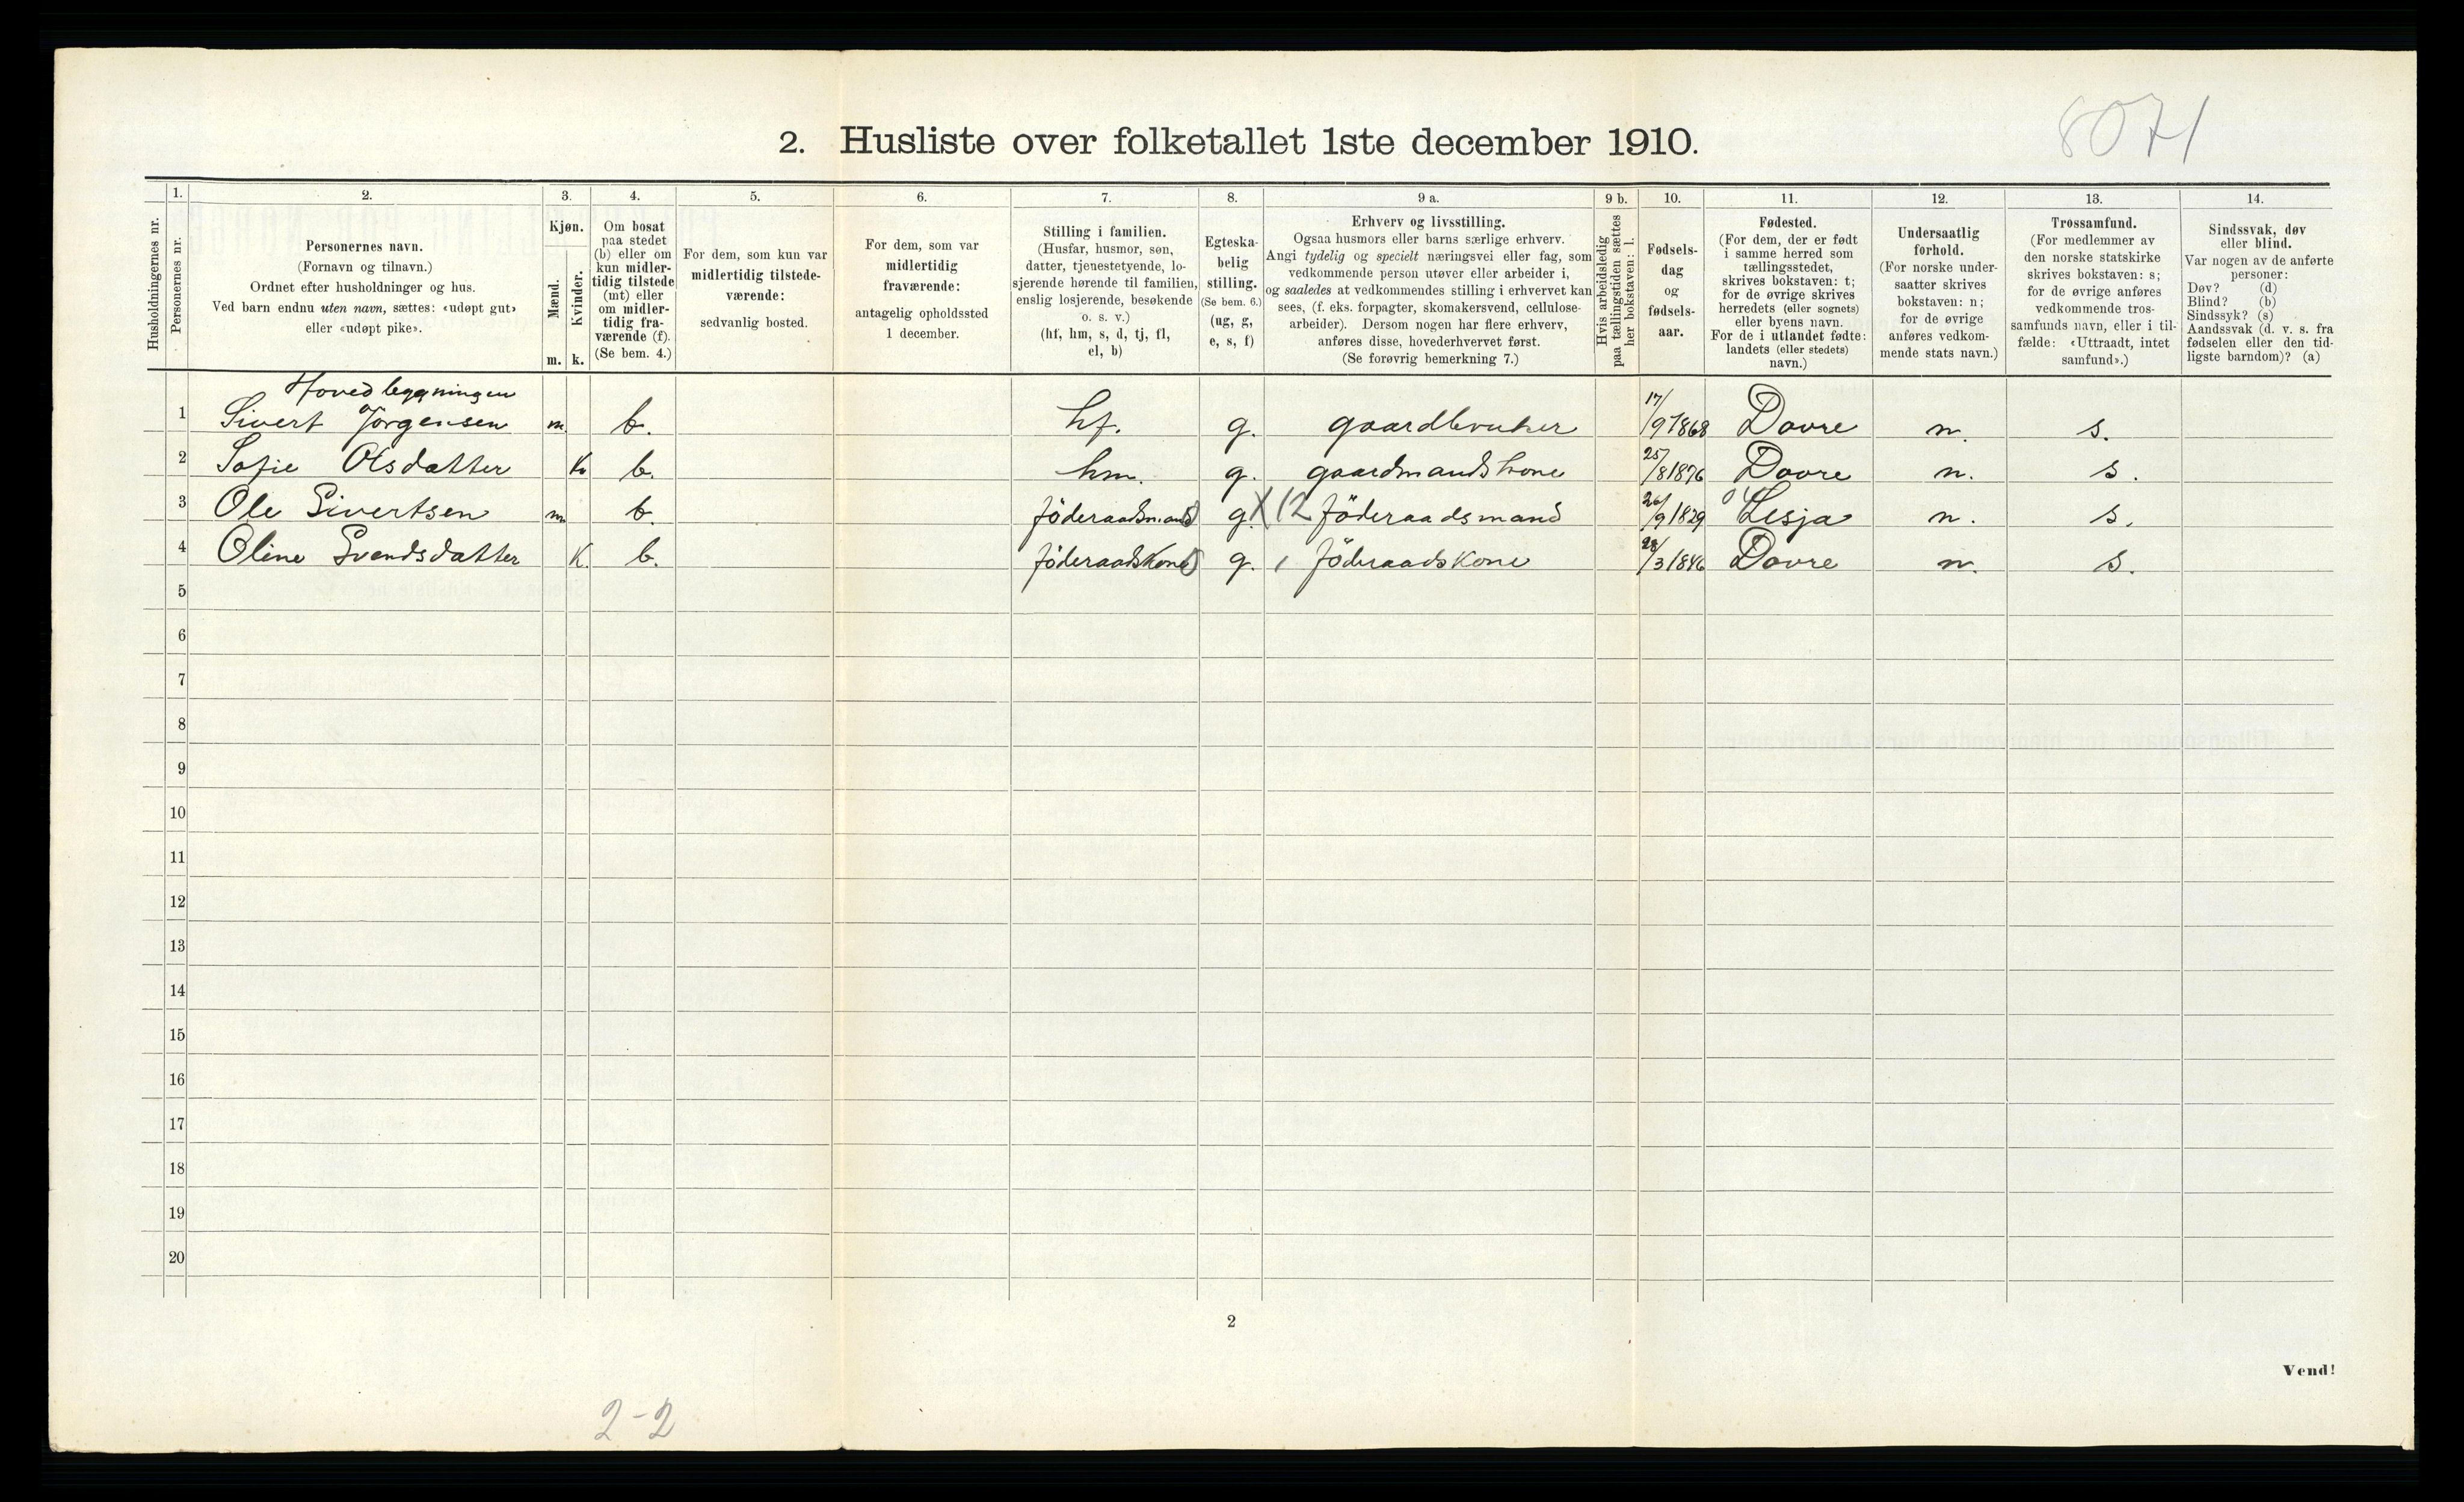 8071
2. Husliste over folketallet 1ste december 1910.
Husholdningernes nr.
1. Personernes nr.
2. Personernes navn. (Fornavn og tilnavn.) Ordnet efter husholdninger og hus. Ved barn endnu uten navn, sættes: «udøpt gut» eller «udøpt pike».
3. Kjøn. Mænd. m. Kvinder. k.
4. Om bosat paa stedet (b) eller om kun midlertidig tilstede (mt) eller om midlertidig fraværende (f). (Se bem. 4.)
5. For dem, som kun var midlertidig tilstedeværende: sedvanlig bosted.
6. For dem, som var midlertidig fraværende: antagelig opholdssted 1 december.
7. Stilling i familien. (Husfar, husmor, søn, datter, tjenestetyende, losjerende hørende til familien, enslig losjerende, besøkende o. s. v.) (hf, hm, s, d, tj, fl, el, b)
8. Egteskabelig stilling. (Se bem. 6.) (ug, g, e, s, f)
9 a. Erhverv og livsstilling. Ogsaa husmors eller barns særlige erhverv. Angi tydelig og specielt næringsvei eller fag, som vedkommende person utøver eller arbeider i, og saaledes at vedkommendes stilling i erhvervet kan sees, (f. eks. forpagter, skomakersvend, cellulosearbeider). Dersom nogen har flere erhverv, anføres disse, hovederhvervet først. (Se forøvrig bemerkning 7.)
9 b. Hvis arbeidsledig paa tællingstiden sættes her bokstaven: l.
10. Fødselsdag og fødselsaar.
11. Fødested. (For dem, der er født i samme herred som tællingsstedet, skrives bokstaven: t; for de øvrige skrives herredets (eller sognets) eller byens navn. For de i utlandet fødte: landets (eller stedets) navn.)
12. Undersaatlig forhold. (For norske undersaatter skrives bokstaven: n; for de øvrige anføres vedkommende stats navn.)
13. Trossamfund. (For medlemmer av den norske statskirke skrives bokstaven: s; for de øvrige anføres vedkommende trossamfunds navn, eller i tilfælde: «Uttraadt, intet samfund».)
14. Sindssvak, døv eller blind. Var nogen av de anførte personer: Døv? (d) Blind? (b) Sindssyk? (s) Aandssvak (d. v. s. fra fødselen eller den tidligste barndom)? (a)
Hovedbygningen
1 Sivert Jörgensen m. b. hf. g. gaardbruker 17/9 1868 Dovre n. s.
2 Sofie Olsdatter K b. hm. g. gaardmandskone 25/8 1876 Dovre n. s.
3 Ole Sivertsen m b. föderaadsmand g. X 12 föderaadsmand 26/9 1829 Lesja n. s.
4 Oline Svendsdatter K. b. föderaadskone g. föderaadskone 28/3 1846 Dovre n. s.
5
6
7
8
9
10
11
12
13
14
15
16
17
18
19
20
2
Vend!
2-2